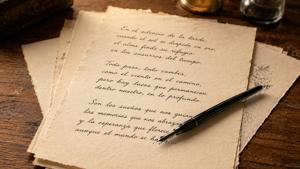 En el silencio de la tarde,
cuando el sol se despide en oro,
el alma funde su refugio
en los susurros del tiempo.
Todo pasa, todo cambia,
como el viento en el camino,
pero hay luces que permanecen
dentro nuestro, en lo profundo.
Son los sueños que nos guían,
las memorias que nos abrazan
y la esperanza que florece
aunque el mundo se